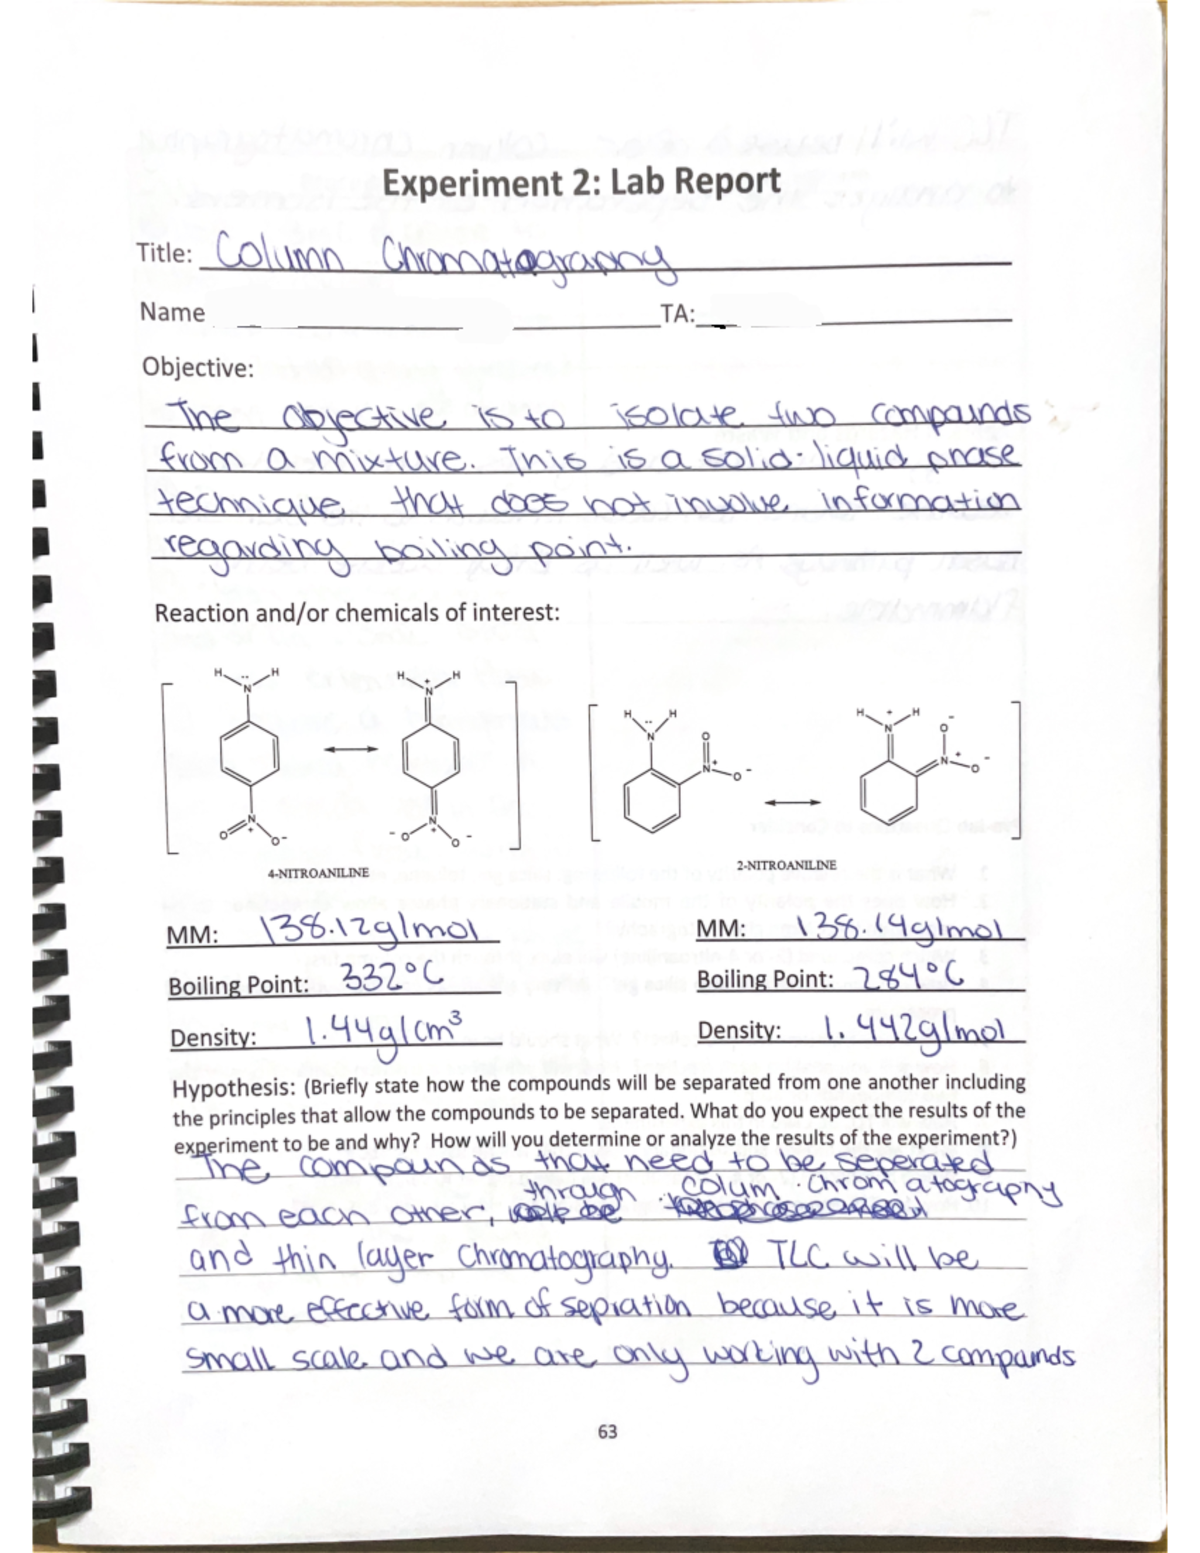 Experiment 2: Lab Report
Title: Column Chromatography
Name TA:
Objective:
The objective is to isolate two compounds
from a mixture. This is a solid-liquid phase
technique that does not involve information
regarding boiling point.
Reaction and/or chemicals of interest:
4-NITROANILINE
2-NITROANILINE
MM: 138.12g/mol MM: 138.14g/mol
Boiling Point: 332°C Boiling Point: 284°C
Density: 1.44g/cm³ Density: 1.442g/mol
Hypothesis: (Briefly state how the compounds will be separated from one another including
the principles that allow the compounds to be separated. What do you expect the results of the
experiment to be and why? How will you determine or analyze the results of the experiment?)
The compounds that need to be seperated
through colum chromatography
from each other,
and thin layer Chromatography. TLC will be
a more effective form of sepiration because it is more
small scale and we are only working with 2 compounds
63